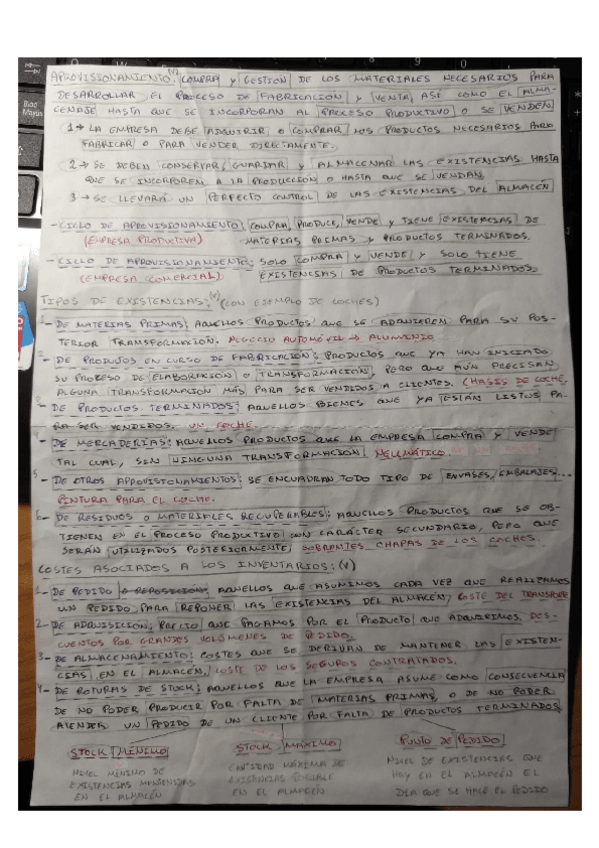 APROVISIONAMIENTO: COMPRA Y GESTIÓN DE LOS MATERIALES NECESARIOS PARA
DESARROLLAR EL PROCESO DE FABRICACIÓN Y VENTA, ASÍ COMO EL ALMA-
CENAJE HASTA QUE SE INCORPORAN AL PROCESO PRODUCTIVO O SE VENDEN.
1 → LA EMPRESA DEBE ADQUIRIR O COMPRAR LOS PRODUCTOS NECESARIOS PARA
FABRICAR O PARA VENDER DIRECTAMENTE.
2 → SE DEBEN CONSERVAR, GUARDAR Y ALMACENAR LAS EXISTENCIAS HASTA
QUE SE INCORPOREN A LA PRODUCCIÓN O HASTA QUE SE VENDAN
3 → SE LLEVARÁ UN PERFECTO CONTROL DE LAS EXISTENCIAS DEL ALMACÉN
- CICLO DE APROVISIONAMIENTO: COMPRA, PRODUCE, VENDE Y TIENE EXISTENCIAS DE
(EMPRESA PRODUCTIVA) MATERIAS PRIMAS Y PRODUCTOS TERMINADOS.
- CICLO DE APROVISIONAMIENTO: SOLO COMPRA Y VENDE Y SOLO TIENE
(EMPRESA COMERCIAL) EXISTENCIAS DE PRODUCTOS TERMINADOS.
TIPOS DE EXISTENCIAS: (CON EJEMPLO DE COCHES)
1- DE MATERIAS PRIMAS: AQUELLOS PRODUCTOS QUE SE ADQUIEREN PARA SU POS-
TERIOR TRANSFORMACIÓN. NEGOCIO AUTOMÓVIL → ALUMINIO
2- DE PRODUTOS EN CURSO DE FABRICACIÓN: PRODUCTOS QUE YA HAN INICIADO
SU PROCESO DE ELABORACIÓN O TRANSFORMACIÓN, PERO QUE AÚN PRECISAN
ALGUNA TRANSFORMACIÓN MÁS PARA SER VENDIDOS A CLIENTES. (CHASIS DE COCHE.
3- DE PRODUCTOS TERMINADOS: AQUELLOS BIENES QUE YA ESTÁN LISTOS PA-
RA SER VENDIDOS. UN COCHE
4- DE MERCADERÍAS: AQUELLOS PRODUCTOS QUE LA EMPRESA COMPRA Y VENDE
TAL CUAL, SIN NINGUNA TRANSFORMACIÓN. NEUMÁTICO.
5- DE OTROS APROVISIONAMIENTOS: SE ENCUADRAN TODO TIPO DE ENVASES, EMBALAJES...
PINTURA PARA EL COCHE.
6- DE RESIDUOS O MATERIALES RECUPERABLES: AQUELLOS PRODUCTOS QUE SE OB-
TIENEN EN EL PROCESO PRODUCTIVO CON CARÁCTER SECUNDARIO, PERO QUE
SERÁN UTILIZADOS POSTERIORMENTE. SOBRANTES CHAPAS DE LOS COCHES.
COSTES ASOCIADOS A LOS INVENTARIOS: (V)
1- DE PEDIDO O REPOSICIÓN: AQUELLOS QUE ASUMIMOS CADA VEZ QUE REALIZAMOS
UN PEDIDO PARA REPONER LAS EXISTENCIAS DEL ALMACÉN. COSTE DEL TRANSPORTE
2- DE ADQUISICIÓN: PRECIO QUE PAGAMOS POR EL PRODUCTO QUE ADQUIRIMOS. DES-
CUENTOS POR GRANDES VOLÚMENES DE PEDIDO.
3- DE ALMACENAMIENTO: COSTES QUE SE DERIVAN DE MANTENER LAS EXISTEN-
CIAS EN EL ALMACÉN. COSTE DE LOS SEGUROS CONTRATADOS.
4- DE ROTURAS DE STOCK: AQUELLOS QUE LA EMPRESA ASUME COMO CONSECUENCIA
DE NO PODER PRODUCIR POR FALTA DE MATERIAS PRIMAS, O DE NO PODER
ATENDER UN PEDIDO DE UN CLIENTE POR FALTA DE PRODUCTOS TERMINADOS
STOCK MÍNIMO STOCK MÁXIMO PUNTO DE PEDIDO
NIVEL MÍNIMO DE CANTIDAD MÁXIMA DE NIVEL DE EXISTENCIAS QUE
EXISTENCIAS MANTENIDAS EXISTENCIAS POSIBLE HAY EN EL ALMACÉN EL
EN EL ALMACÉN EN EL ALMACÉN DÍA QUE SE HACE EL PEDIDO